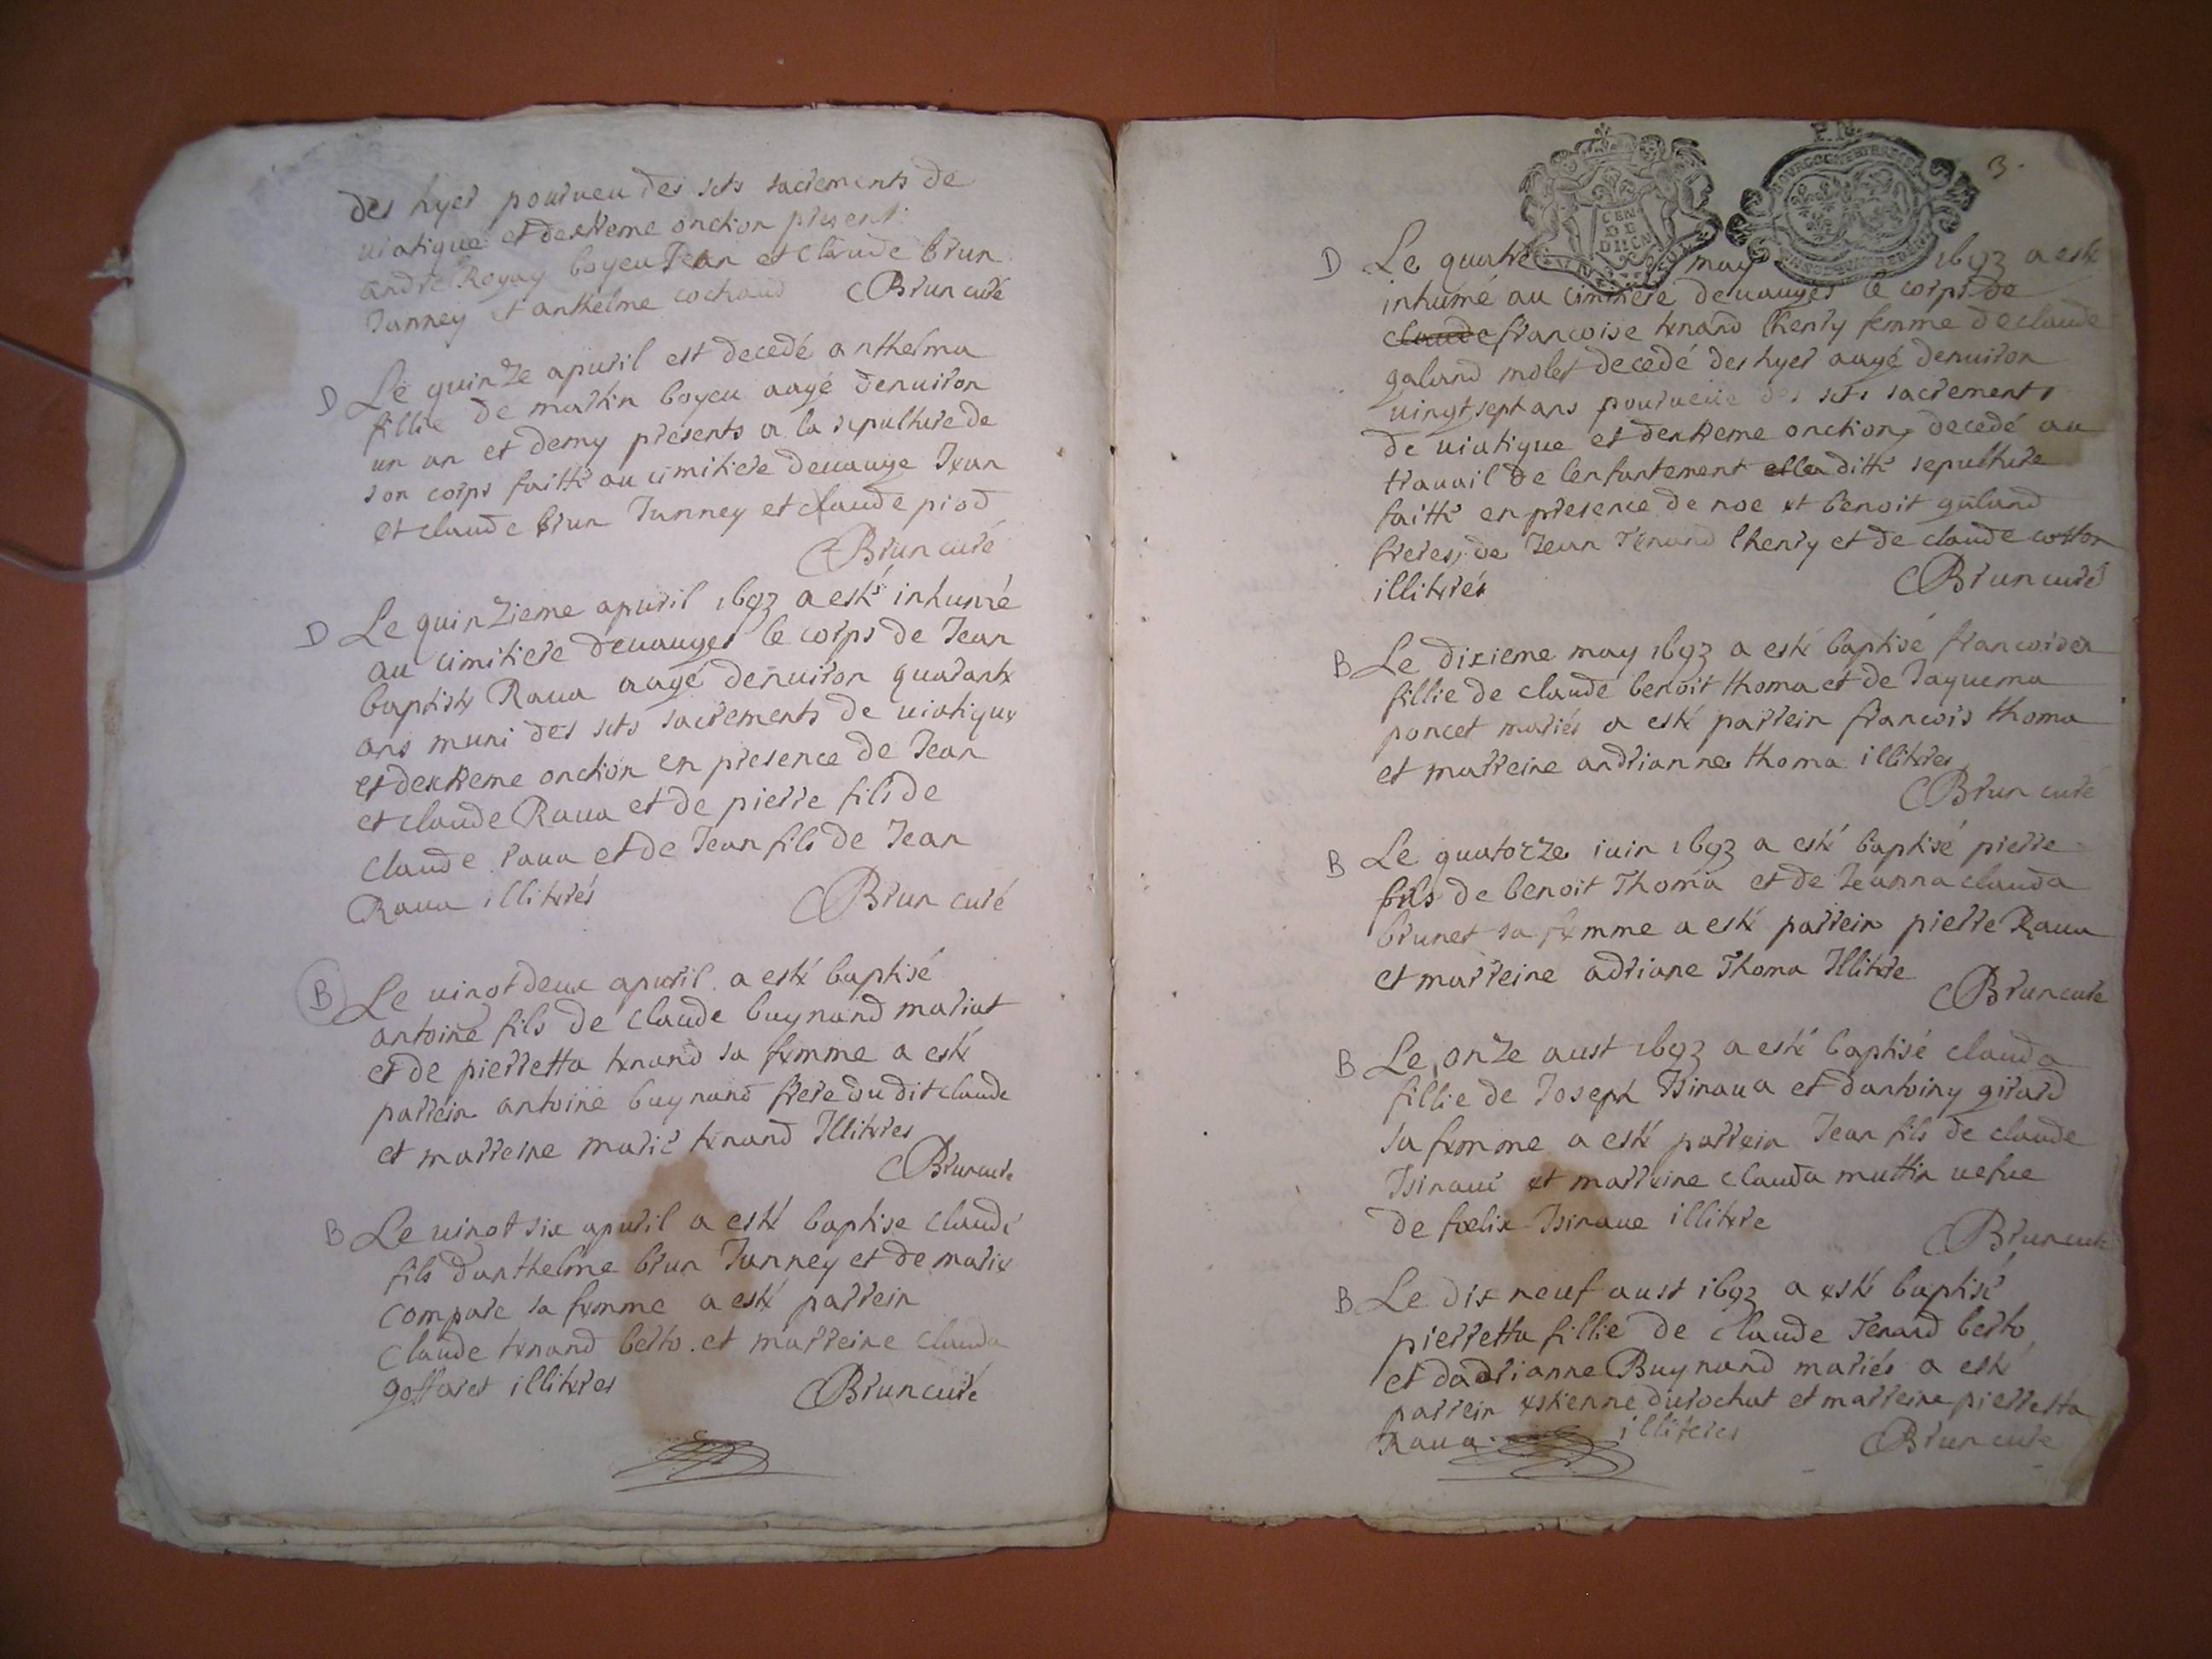 des hyer pourueu des sets sacrements de
uiatique et dextreme onction present
andre Royay boyeu Jean et claude brun
Junney et anthelme cochaud Brun curé
D Le quinze apuril est decedé anthelma
fillie de martin boyeu aagé denuiron
un an et demy presents a la sepulture de
son corps faitte au cimitiere deuauge Jean
et claude brun Junney et claude piod
Brun curé
D Le quinzieme apuril 1693 a esté inhumé
au cimitiere deuauges le corps de Jean
baptiste Raua aagé denuiron quarante
ans muni des sets sacrements de uiatique
et dextreme onction en presence de Jean
et claude Raua et de pierre fils de
claude raua et de Jean fils de Jean
Raua illiterés Brun curé
B Le uingt deux apuril a esté baptisé
antoine fils de claude buynand mariat
et de pierretta tenand sa femme a esté
parrein antoine buynand frere du dit claude
et marreine marie tenand Illiteres
Brun cure
B Le uingt six apuril a esté baptise claude
fils danthelme brun Junney et de marie
compare sa femme a esté parrein
claude tenand berto et marreine clauda
goffaret illiteres Brun curé
3.
F.N.
CEN DE DIJCN
D Le quatre may 1693 a esté
inhumé au cimitiere deuauges le corps de
claude francoise tenand lhenry femme de claude
galand molet decedé des hyer aagé denuiron
uingt sept ans pourueue des sets sacrements
de uiatique et dextreme onction decedé au
trauail de lenfantement ella ditte sepulture
faitte en presence de noe et benoit galand
freres, de Jean Tenand lhenry et de claude cotton
illiterés Brun curé
B Le dixieme may 1693 a esté baptisé francoisea
fillie de claude benoit thoma et de Jaquema
poncet mariés a esté parrein francois thoma
et marreine andrianne thoma illiteres
Brun curé
B Le quatorze iuin 1693 a esté baptisé pierre
fils de benoit Thoma et de Jeanna clauda
brunet sa femme a esté parrein pierre Raua
et marreine adriane Thoma Illitere
Brun cure
B Le onze aust 1693 a esté baptisé clauda
fillie de Joseph Tsiraua et dantoiny girard
sa femme a esté parrein Jean fils de claude
Tsiraue et marreine clauda muttin uefue
de foelix Tsiraue illitere
Brun cure
B Le dix neuf aust 1693 a esté baptisé
pierretta fillie de claude Tenand berto
et dadrianne Buynand mariés a esté
parrein estienne durochat et marreine pierretta
Raua illiteres Brun cure